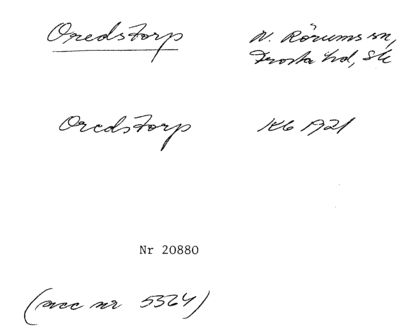 Oredstorp
N. Rörums sn,
Frosta hd, Sk
Oredstorp
KG 1921
Nr 20880
(acc nr 5364)